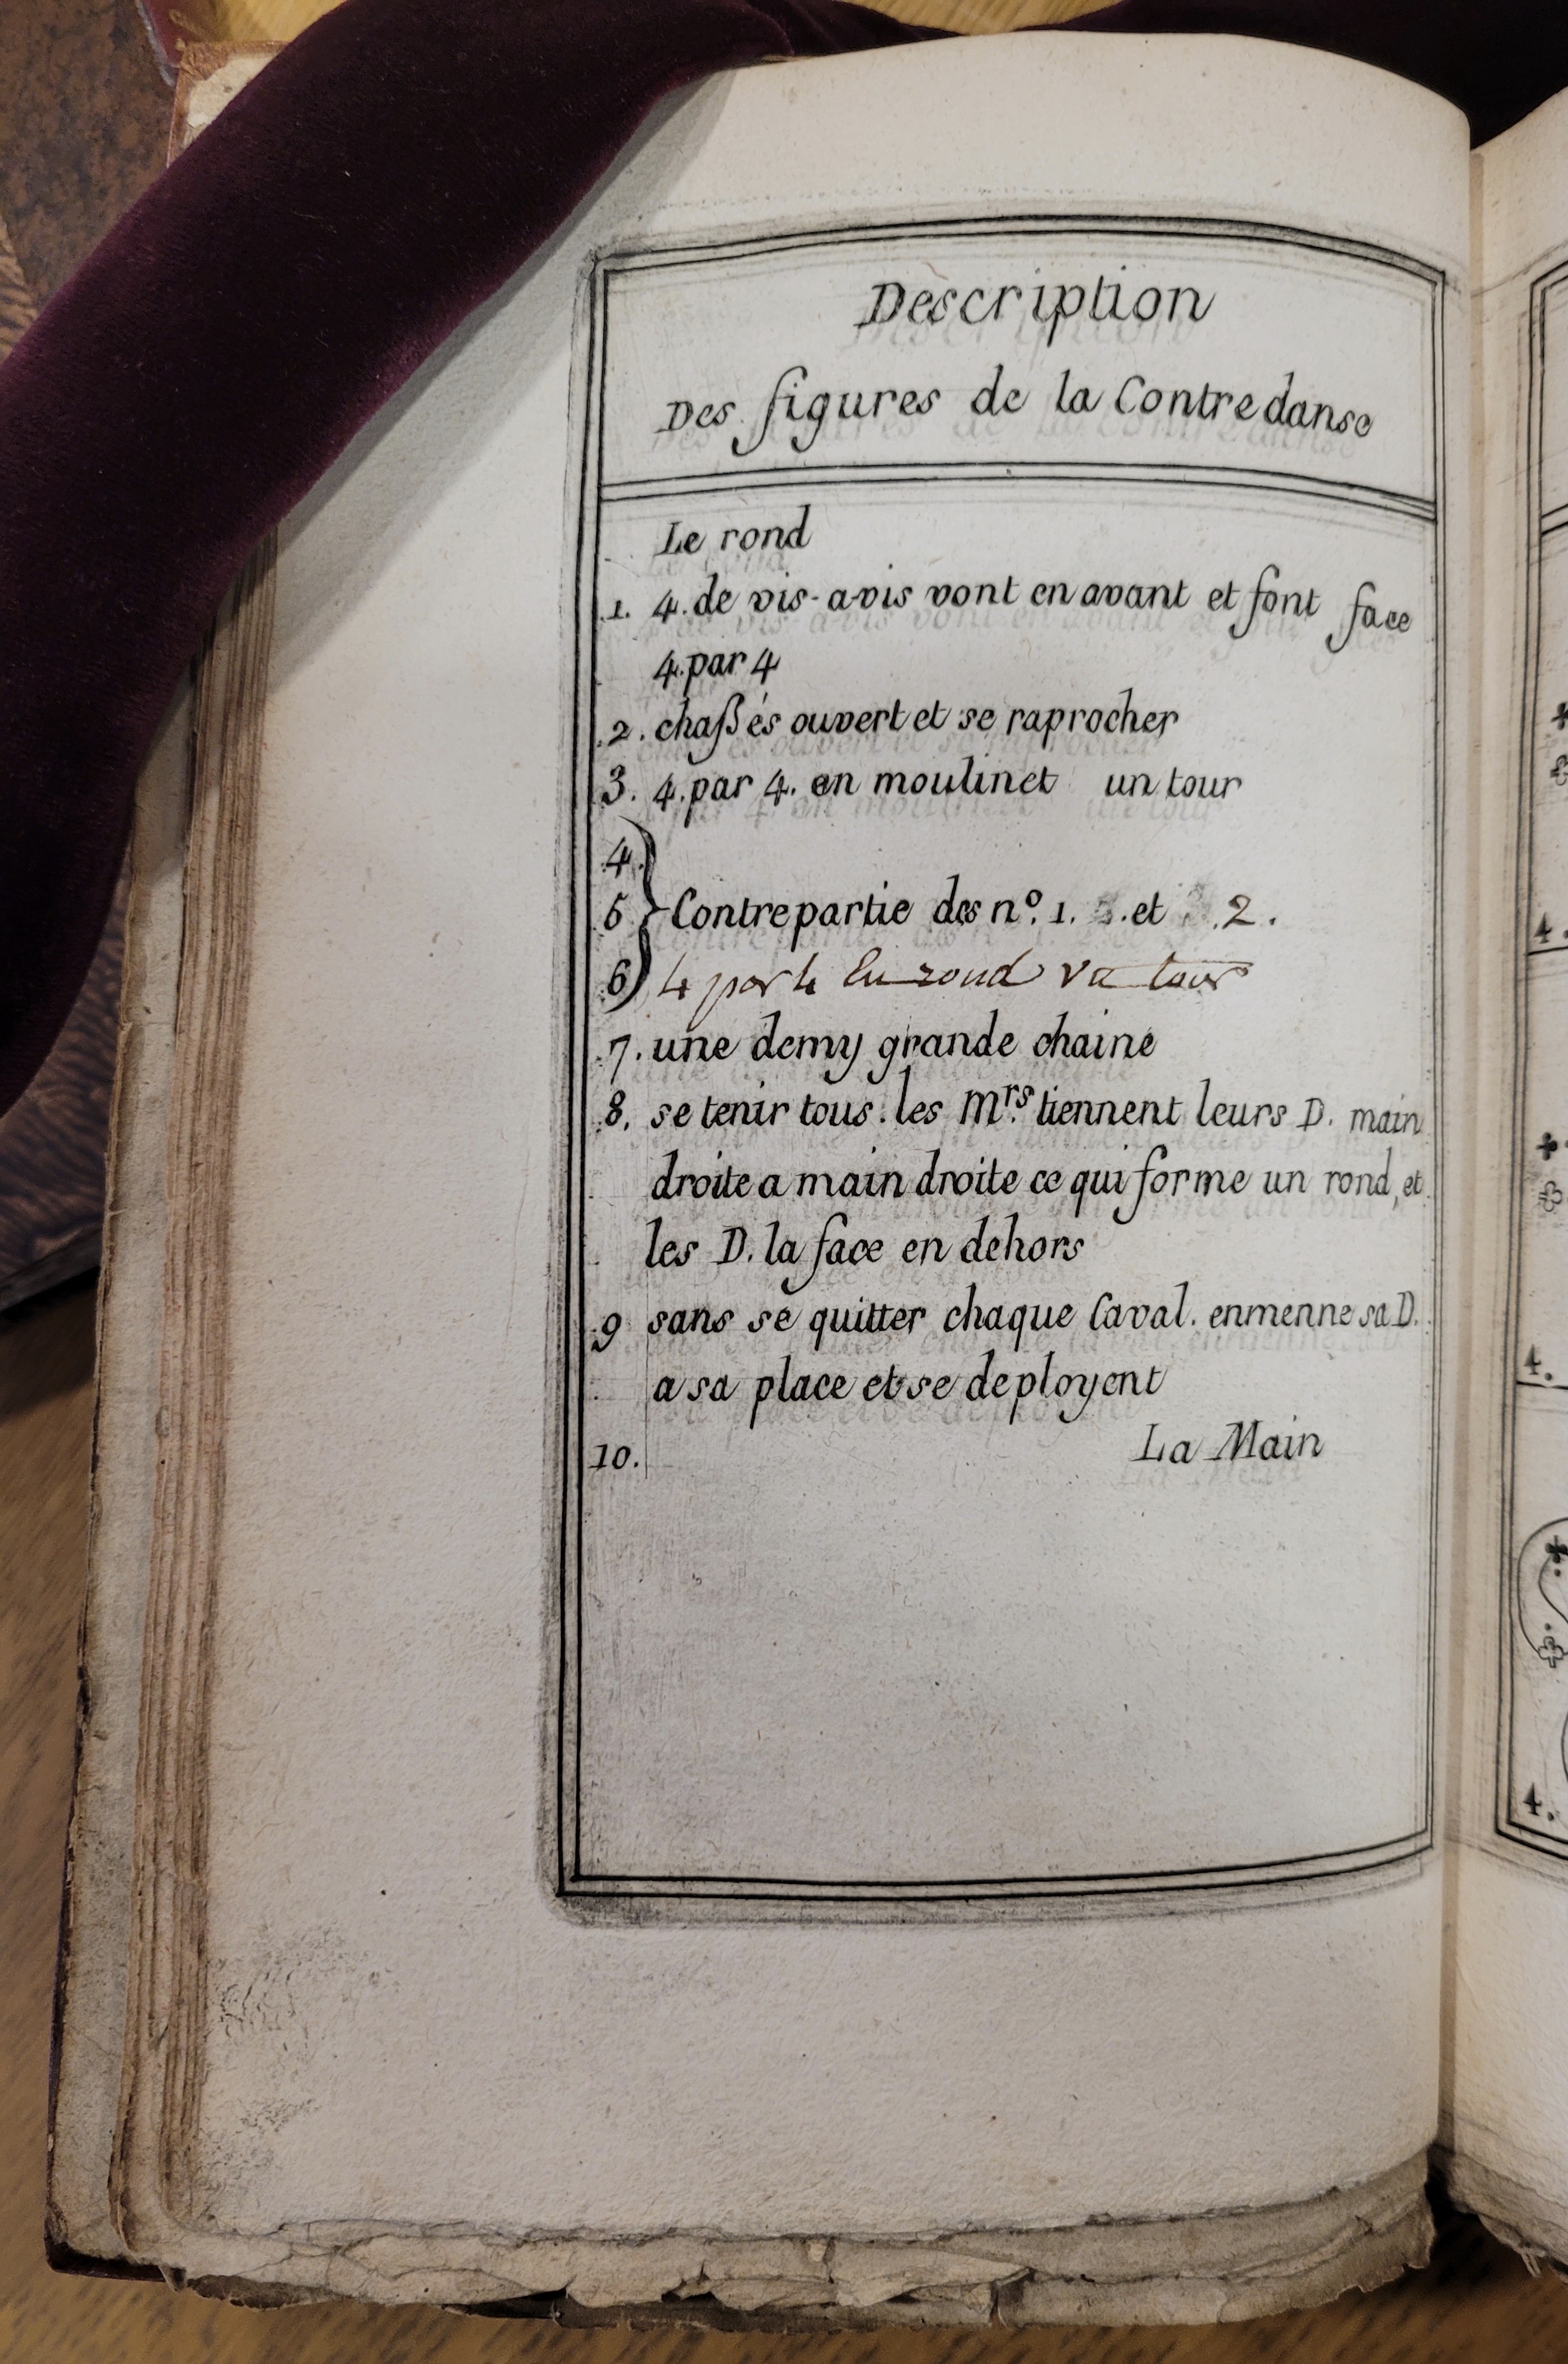 Description
Des figures de la Contredanse
Le rond
1. 4. de vis-avis vont en avant et font face
4. par 4
2. chaßés ouvert et se raprocher
3. 4. par 4. en moulinet un tour
4.
5 Contrepartie des nº. 1. et 2.
6 4 par 4 En rond Un tour
7. une demy grande chaine
8. se tenir tous. les Mrs. tiennent leurs D. main
droite a main droite ce qui forme un rond, et
les D. la face en dehors
9 sans se quitter chaque Caval. enmenne sa D.
a sa place et se deployent
10. La Main
4.
4.
4.